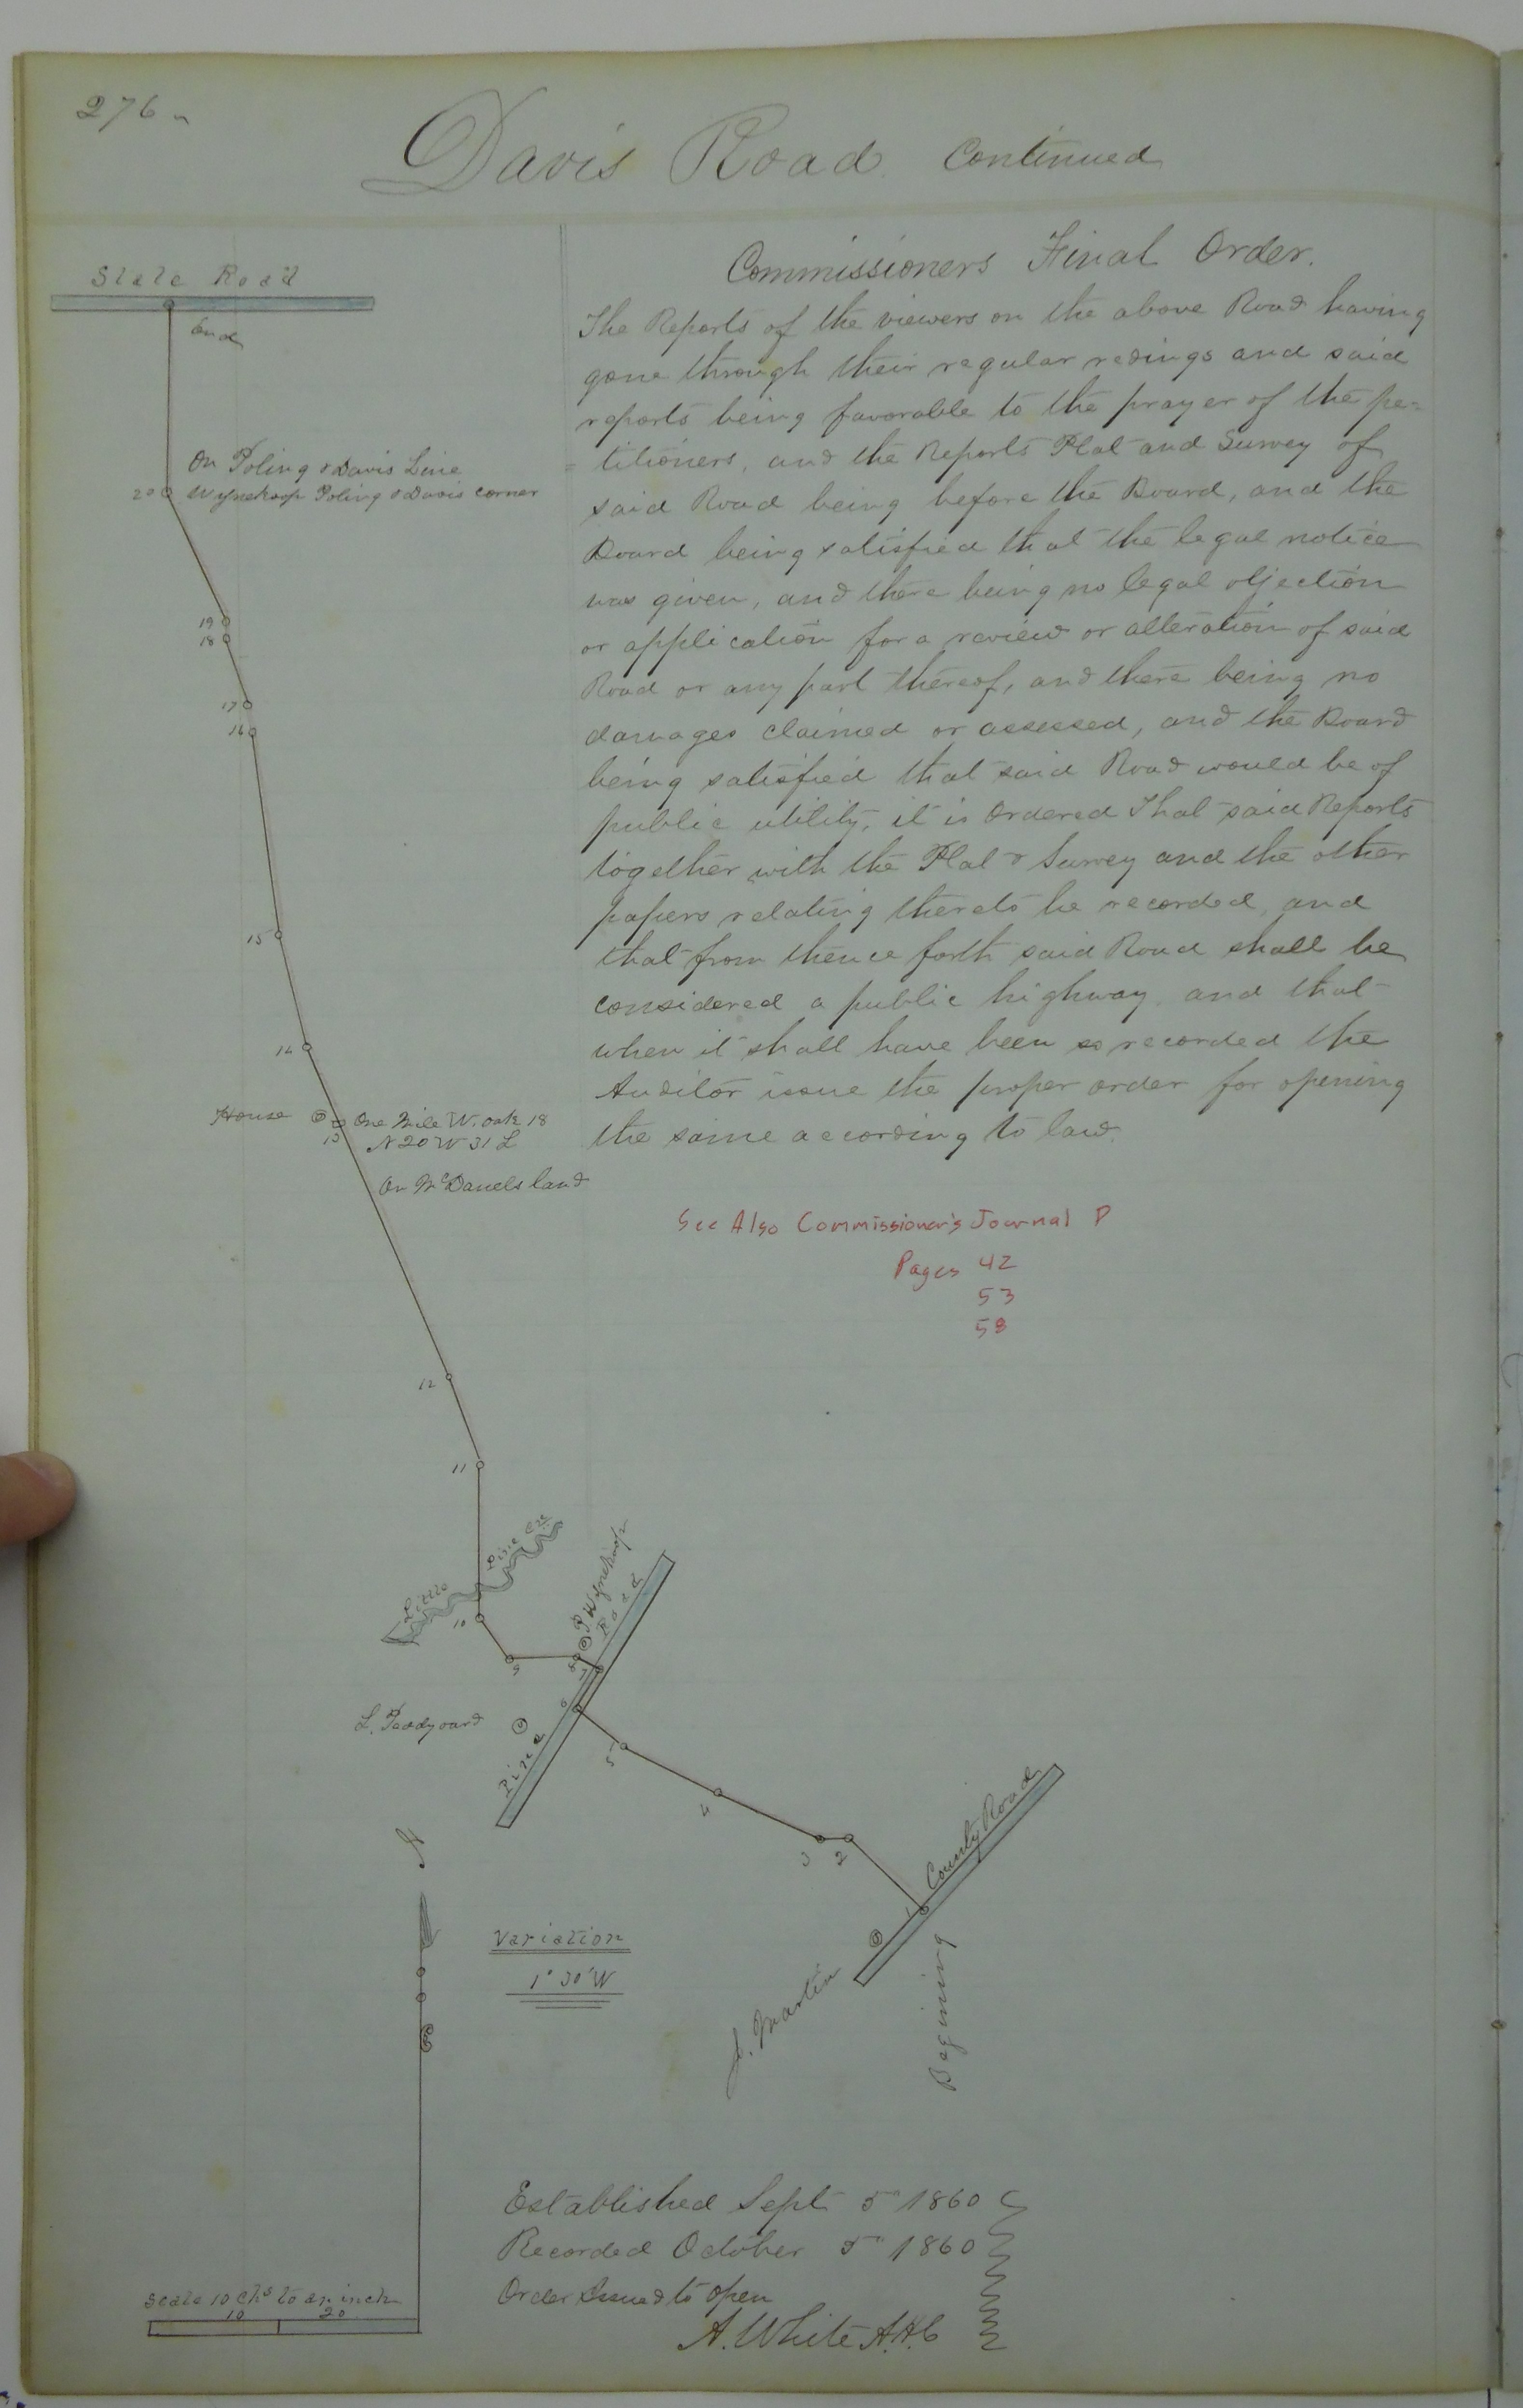 276
Davis Road Continued
State Road
End
On Poling & Davis Line
20 Wynekoop Poling & Davis corner
19
18
17
16
15
14
House One Mile W. oak 18
13 N 20 W 31 L
On McDanels land
12
11
Little Pine Cre
10
9
8
7
P Wynekoop
Pine Road
6
L.
5
4
3
2
1
County Road
J. Martin
Begining
Variation
1° 30' W
Scale 10 Chs to an inch
10 20
Commissioners Final Order.
The Reports of the viewers on the above Road having
gone through their regular redings and said
reports being favorable to the prayer of the pe=
= titioners, and the Reports Plat and Survey of
said Road being before the Board, and the
Board being satisfied that the legal notice
was given, and there being no legal objection
or application for a review or alteration of said
Road or any part thereof, and there being no
damages claimed or assessed, and the Board
being satisfied that said Road would be of
public utility, it is Ordered That said Reports
together with the Plat & Survey and the other
papers relating thereto be recorded, and
that from thence forth said Road shall be
considered a public highway, and that
when it shall have been so recorded the
Auditor issue the proper order for opening
the same according to law.
See Also Commissioner's Journal P
Pages 42
53
58
Established Sept 5th 1860
Recorded October 5th 1860
Order Issued to open
A. White A.A.C